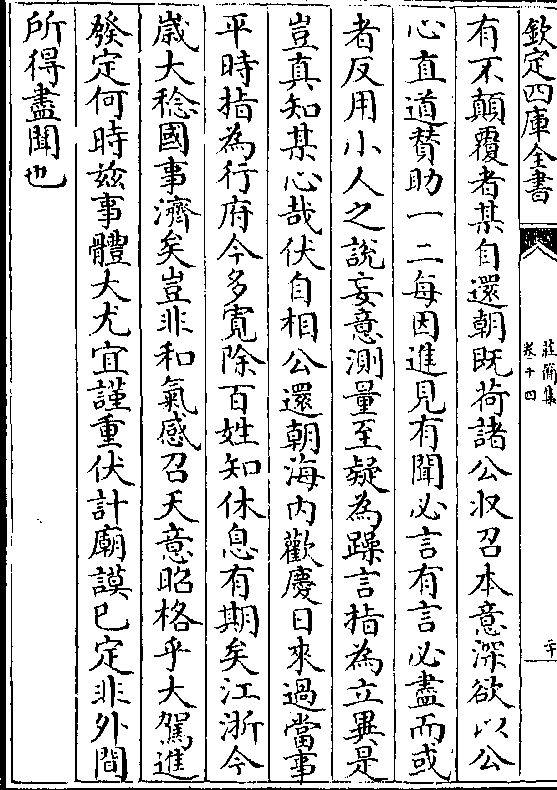 欽定四庫全書
莊簡集
卷十四
二十
有不顛覆者某自還朝既荷諸公収召本意深欲以公
心直道贊助一二每因進見有聞必言有言必盡而或
者反用小人之說妄意測量至疑為躁言指為立異是
豈真知某心哉伏自相公還朝海内歡慶日來過當事
平時指為行府今多寛除百姓知休息有期矣江浙今
嵗大稔國事濟矣豈非和氣感召天意昭格乎大駕進
發定何時兹事體大尤宜謹重伏計廟謨已定非外間
所得盡聞也